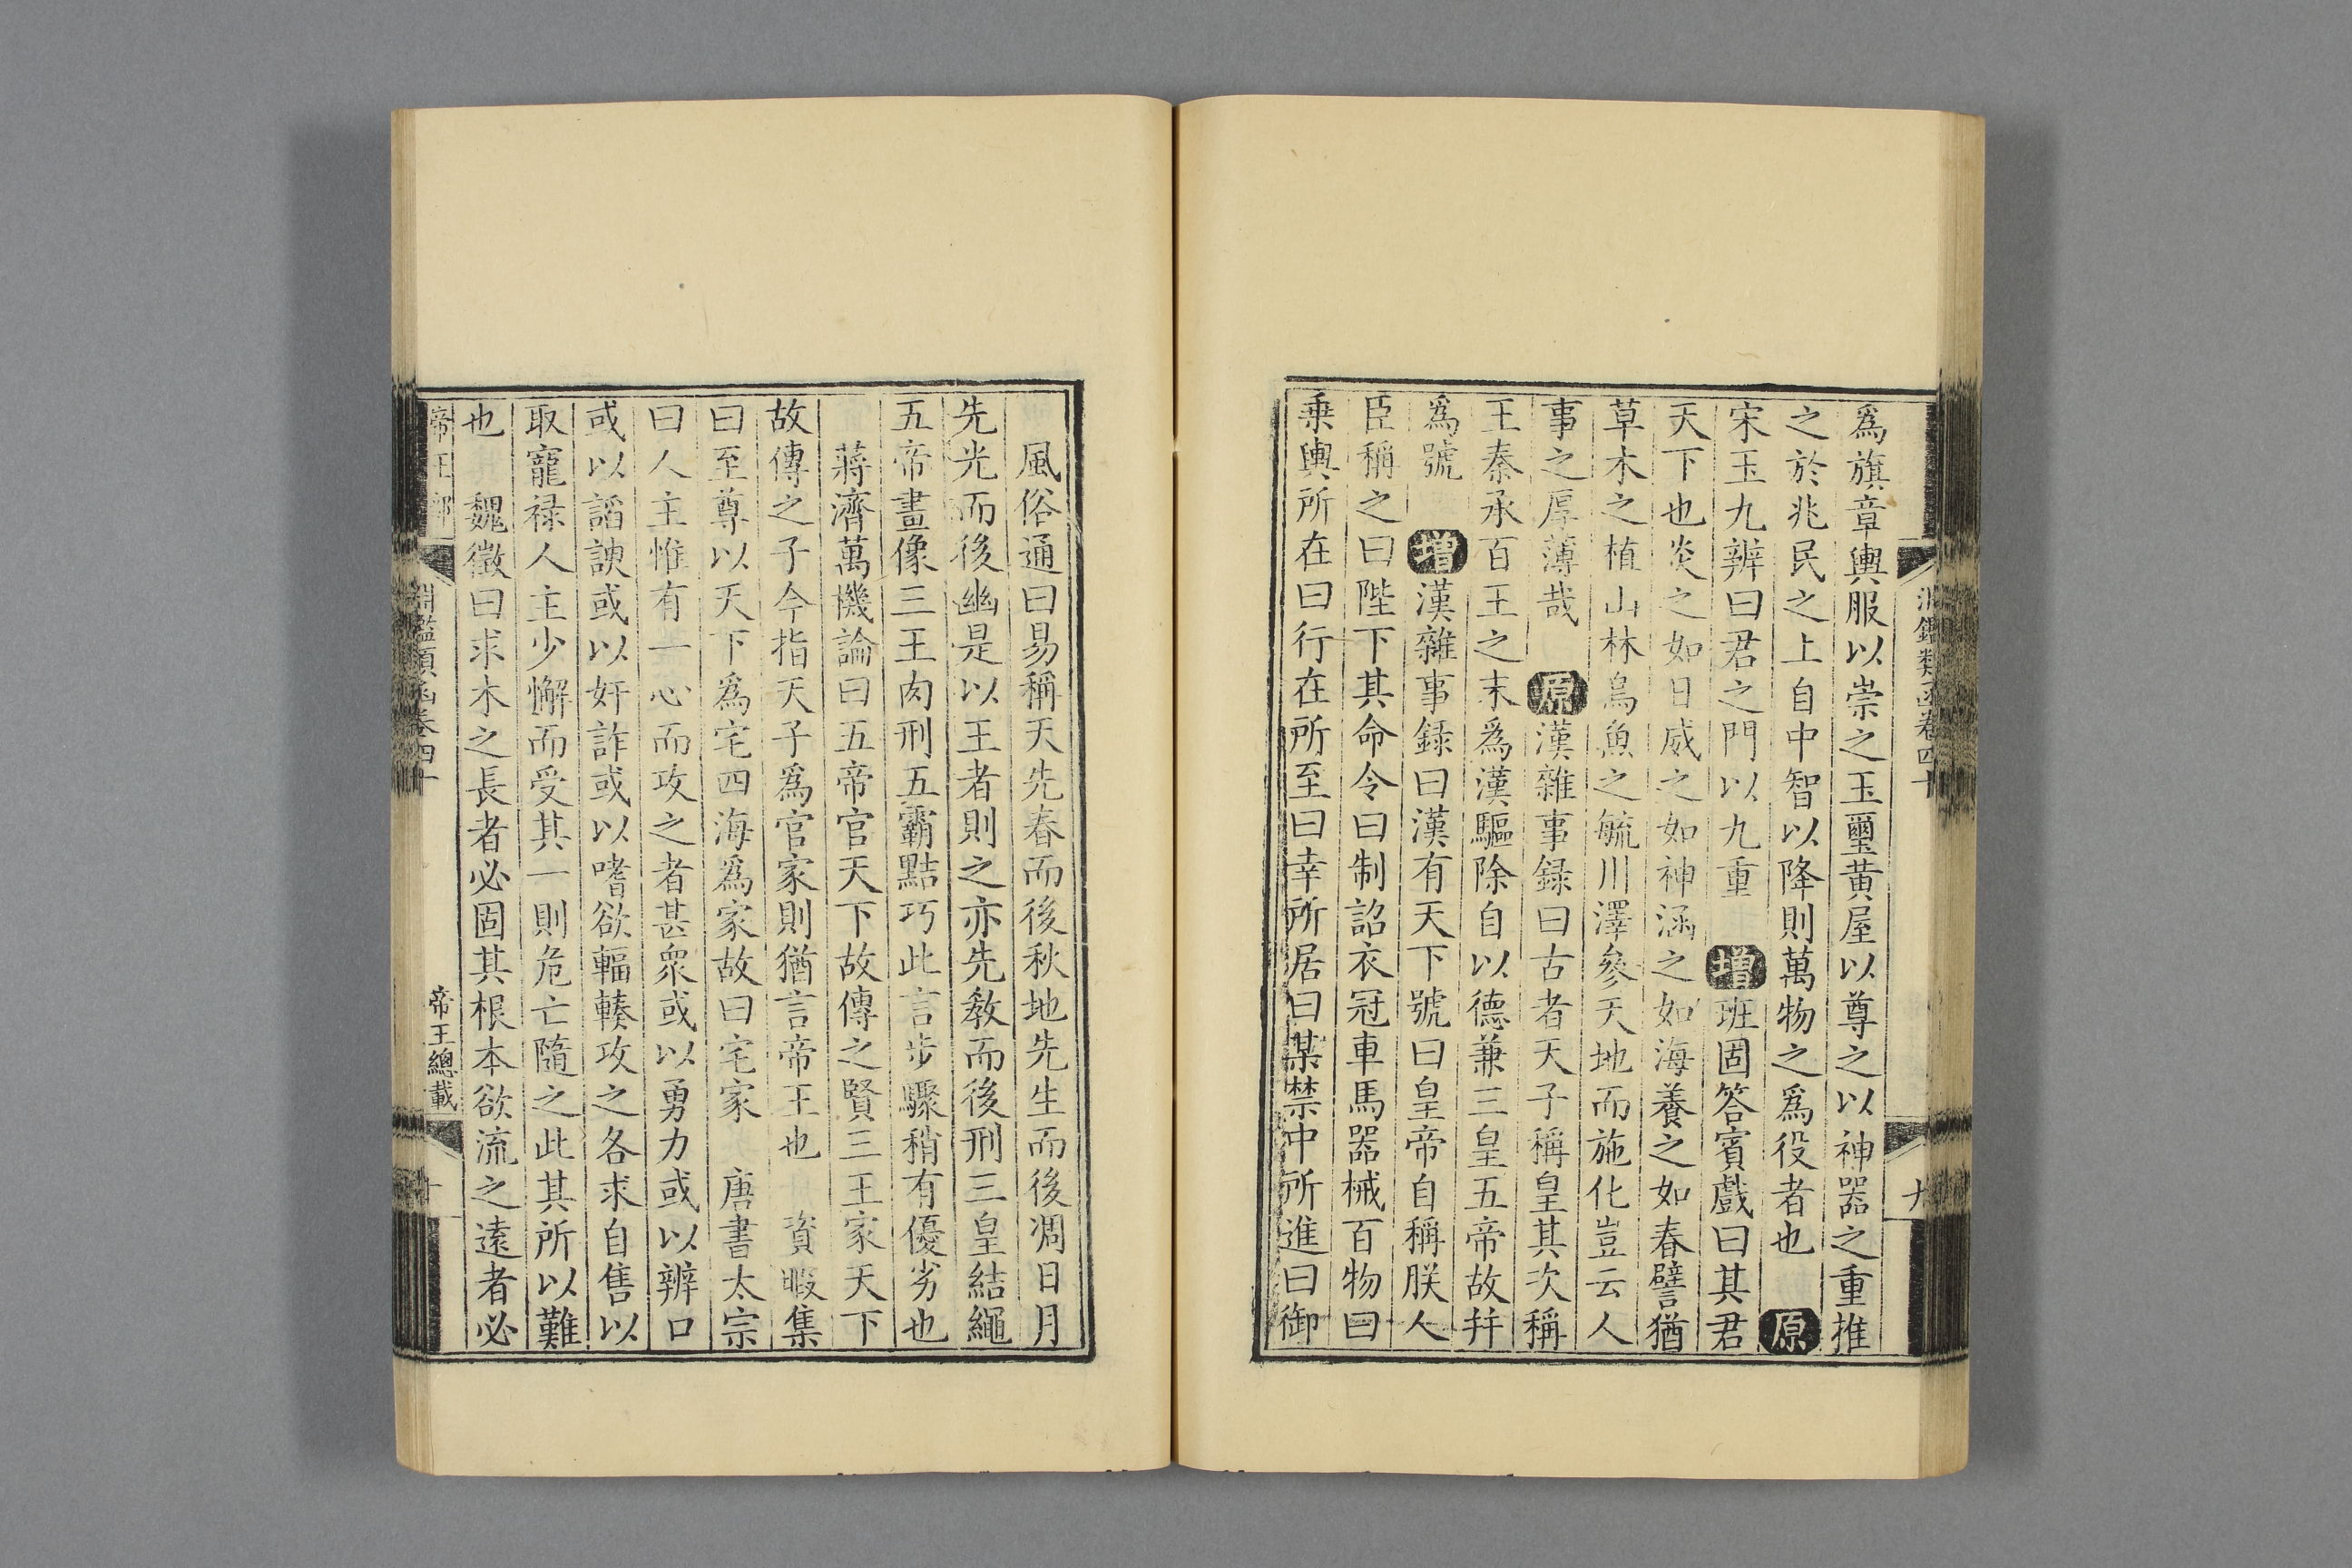 爲旗章輿服以崇之玉璽黄屋以尊之以神器之重推
之於兆民之上自中智以降則萬物之爲役者也 原
宋玉九辨曰君之門以九重 增班固答賓戲曰其君
天下也炎之如日威之如神涵之如海養之如春譬猶
草木之植山林鳥魚之毓川澤參天地而施化豈云人
事之厚薄哉 原漢雜事録曰古者天子稱皇其次稱
王秦承百王之末爲漢驅除自以德兼三皇五帝故并
爲號 增漢雜事録曰漢有天下號曰皇帝自稱朕人
臣稱之曰陛下其命令曰制詔衣冠車馬器械百物曰
乗輿所在曰行在所至曰幸所居曰某禁中所進曰御
風俗通曰易稱天先春而後秋地先生而後凋日月
先光而後幽是以王者則之亦先教而後刑三皇結繩
五帝畫像三王肉刑五霸黠巧此言步驟稍有優劣也
蔣濟萬機論曰五帝官天下故傳之賢三王家天下
故傳之子今指天子爲官家則猶言帝王也 資暇集
曰至尊以天下爲宅四海爲家故曰宅家 唐書太宗
曰人主惟有一心而攻之者甚衆或以勇力或以辨口
或以諂諛或以奸詐或以嗜欲輻輳攻之各求自售以
取寵禄人主少懈而受其一則危亡隨之此其所以難
也 魏徵曰求木之長者必固其根本欲流之遠者必
帝王部
淵鑑類函卷四十
帝王總載
十